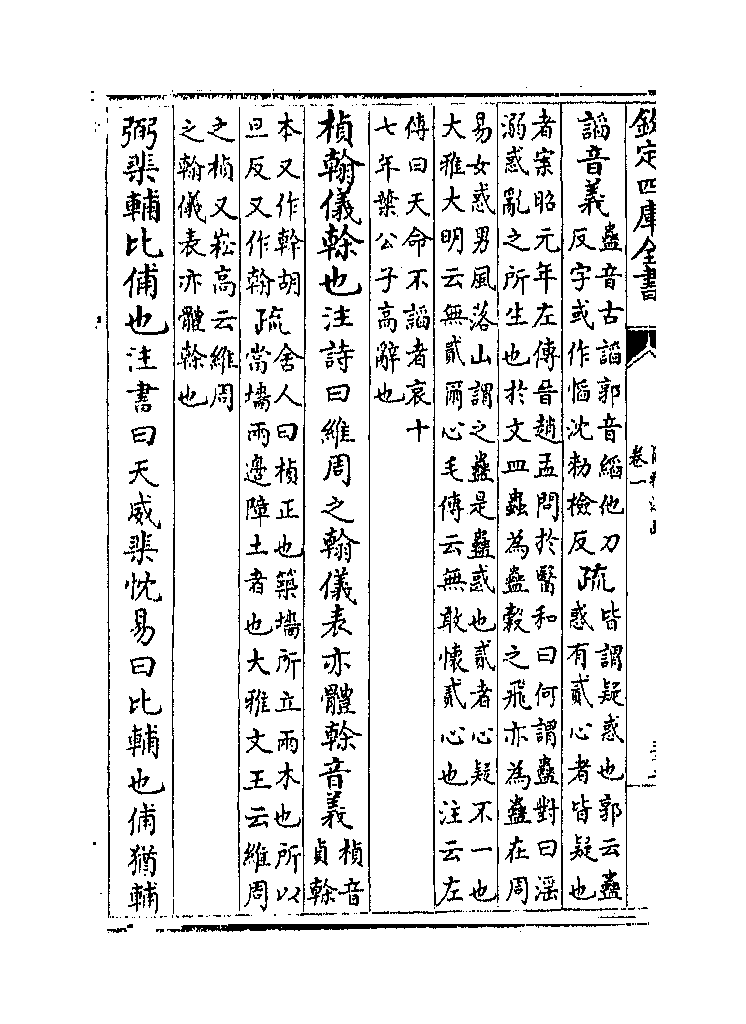 欽定四庫全書
卷一
謟音義蠱音古謟郭音縚他刀
反字或作慆沈勑檢反疏皆謂疑惑也郭云蠱
惑有貳心者皆疑也
者案昭元年左傳晉趙孟問於醫和曰何謂蠱對曰淫
溺惑亂之所生也於文皿蟲為蠱穀之飛亦為蠱在周
易女惑男風落山謂之蠱是蠱惑也貳者心疑不一也
大雅大明云無貳爾心毛傳云無敢懷貳心也注云左
傳曰天命不謟者哀十
七年葉公子高辭也
楨翰儀榦也注詩曰維周之翰儀表亦體榦音義楨音
貞榦
本又作幹胡
旦反又作翰疏舍人曰楨正也築牆所立兩木也所以
當牆兩邊障土者也大雅文王云維周
之楨又崧高云維周
之翰儀表亦體榦也
弼棐輔比俌也注書曰天威棐忱易曰比輔也俌猶輔